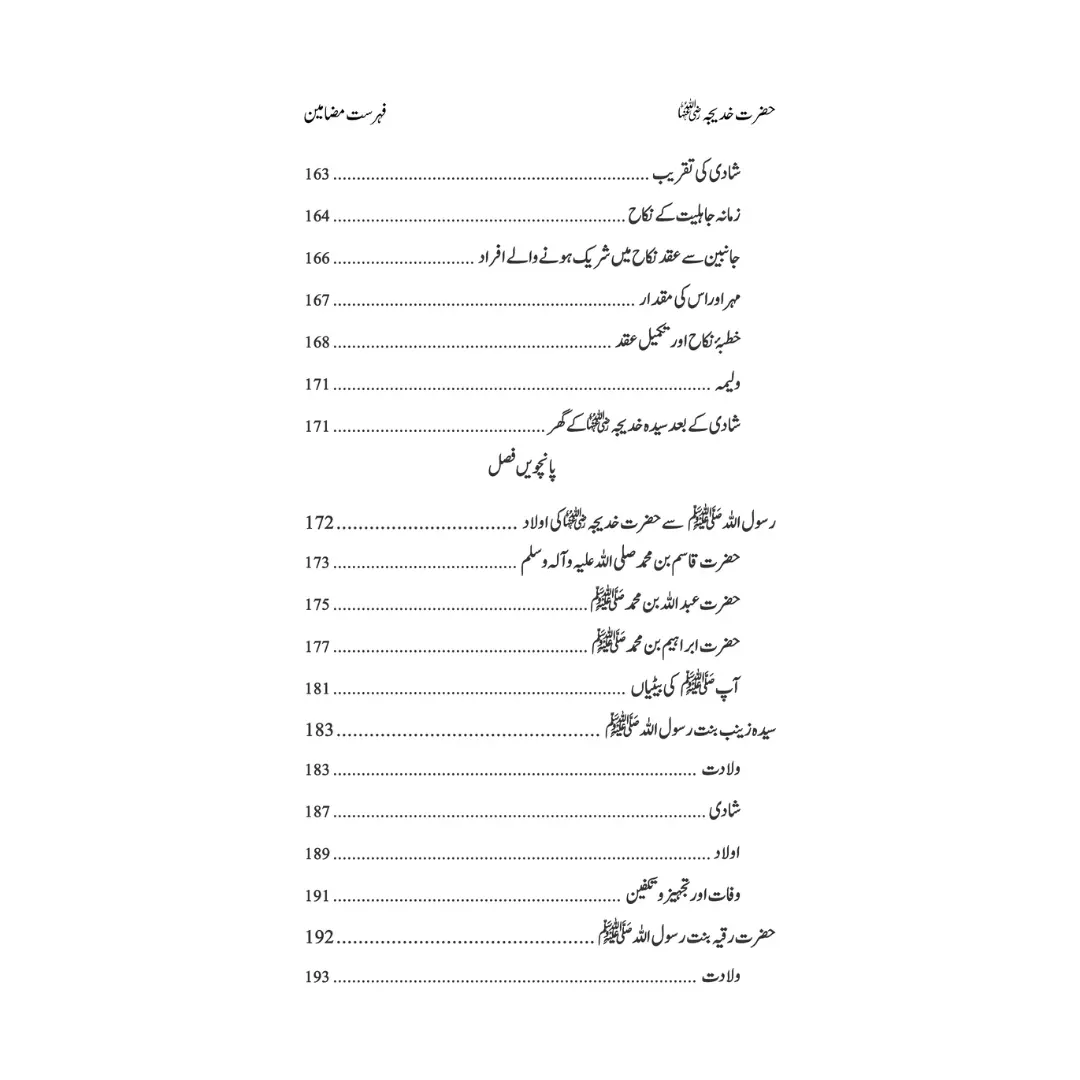 حضرت خدیجہ رضی اللہ عنہا فہرست مضامین
شادی کی تقریب ........ 163
زمانہ جاہلیت کے نکاح ........ 164
جانبین سے عقد نکاح میں شریک ہونے والے افراد ........ 166
مہر اور اس کی مقدار ........ 167
خطبۂ نکاح اور تکمیل عقد ........ 168
ولیمہ ........ 171
شادی کے بعد سیدہ خدیجہ رضی اللہ عنہا کے گھر ........ 171
پانچویں فصل
رسول اللہ ﷺ سے حضرت خدیجہ رضی اللہ عنہا کی اولاد ........ 172
حضرت قاسم بن محمد صلی اللہ علیہ وآلہ وسلم ........ 173
حضرت عبد اللہ بن محمد ﷺ ........ 175
حضرت ابراہیم بن محمد ﷺ ........ 177
آپ ﷺ کی بیٹیاں ........ 181
سیدہ زینب بنت رسول اللہ ﷺ ........ 183
ولادت ........ 183
شادی ........ 187
اولاد ........ 189
وفات اور تجہیز و تکفین ........ 191
حضرت رقیہ بنت رسول اللہ ﷺ ........ 192
ولادت ........ 193